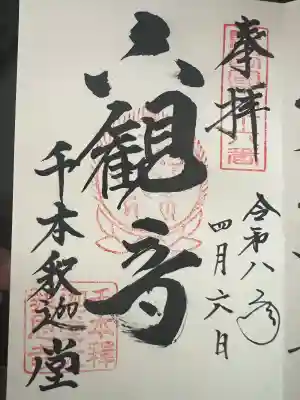 奉拝
令和八年
四月六日
六観音
千本釈迦堂